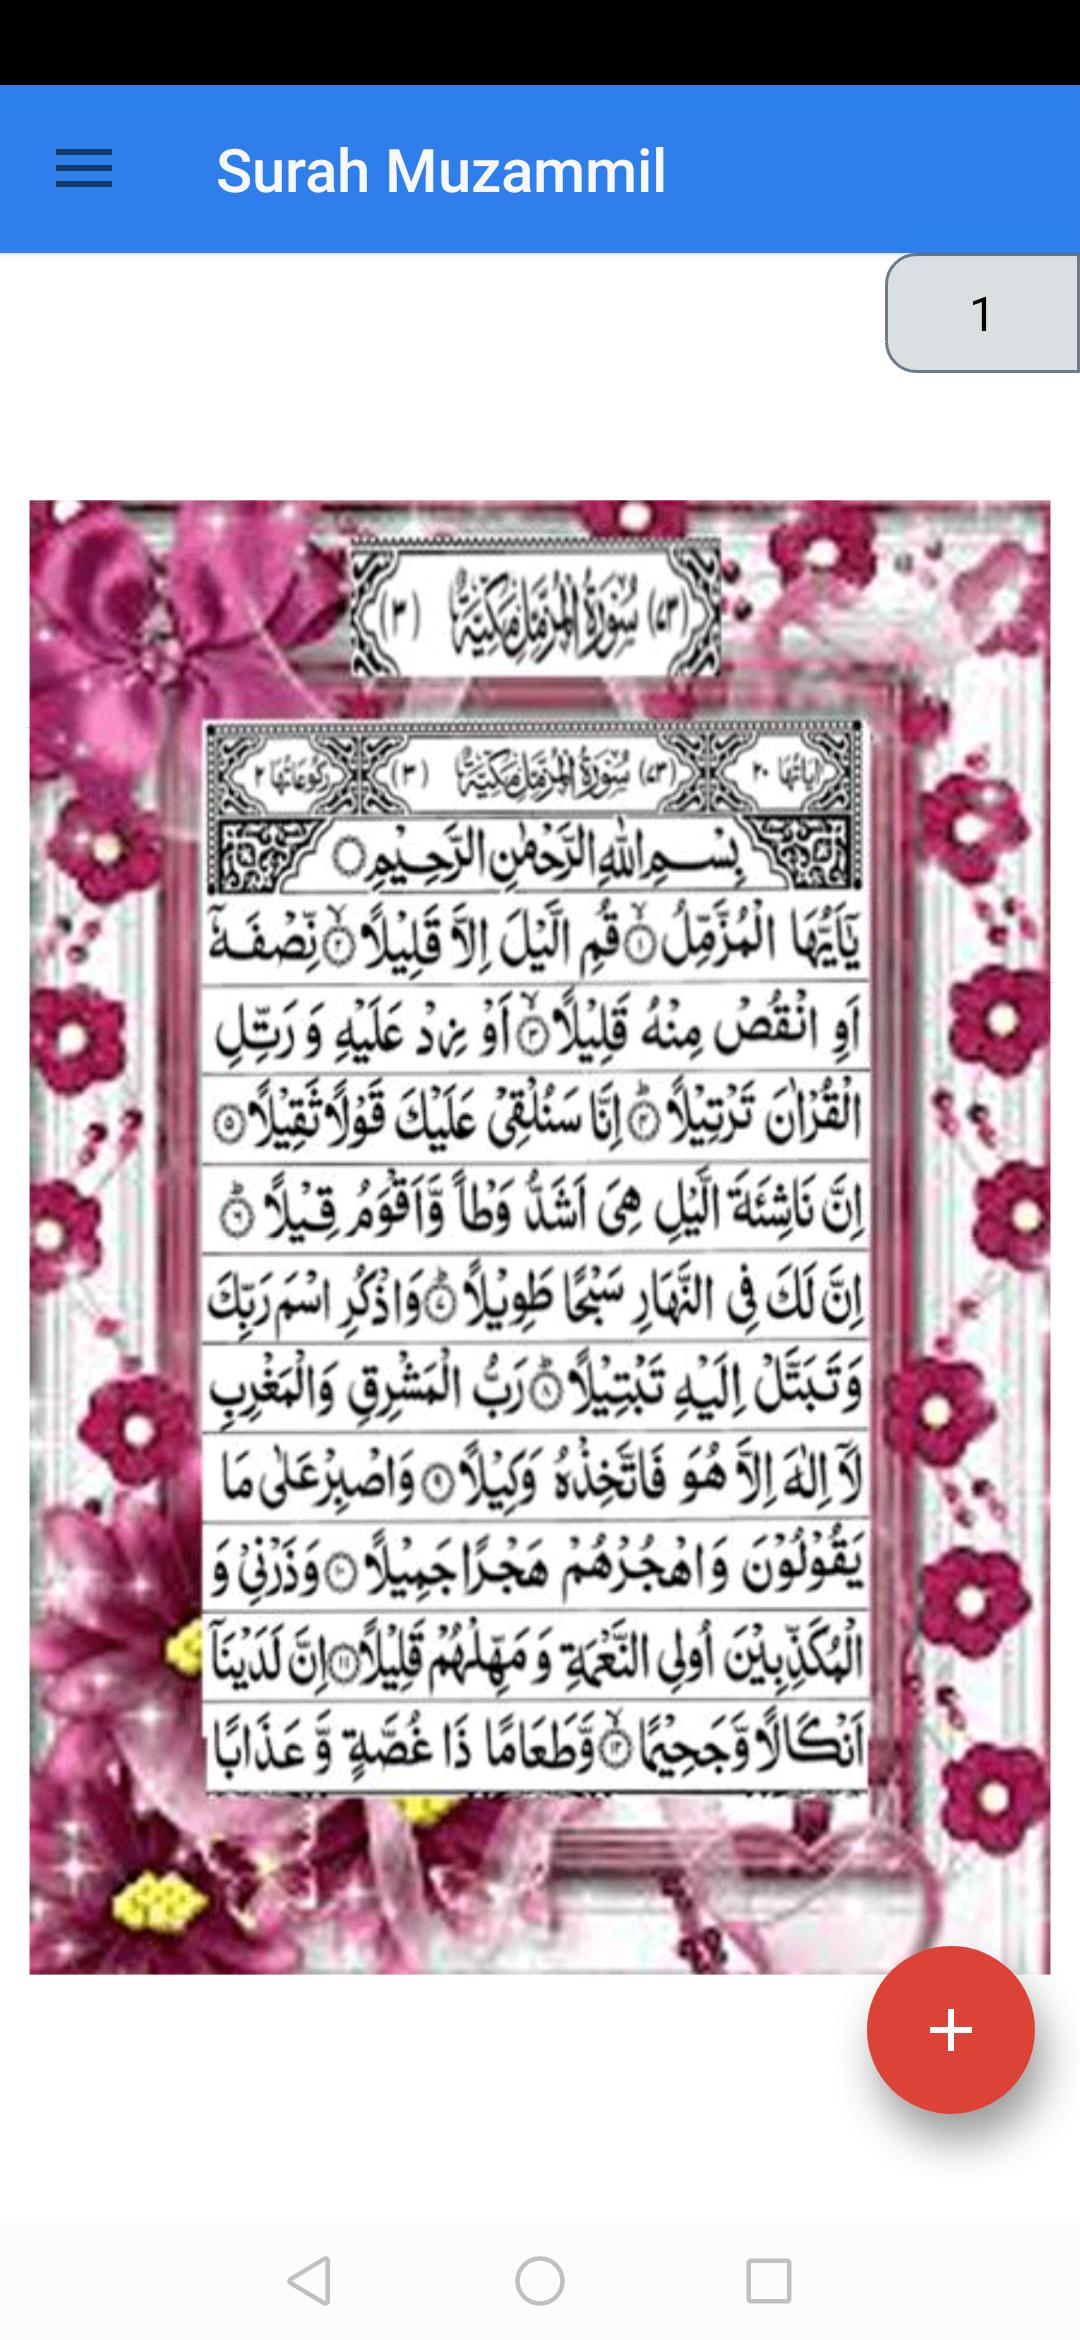 Surah Muzammil
1
(۷۳) سُوْرَةُ الْمُزَّمِّلِ مَكِّيَّةٌ (۳)
اٰيَاتُهَا ۲۰ (۷۳) سُوْرَةُ الْمُزَّمِّلِ مَكِّيَّةٌ (۳) رُكُوْعَاتُهَا ۲
بِسْمِ اللهِ الرَّحْمٰنِ الرَّحِيْمِ ○
يٰۤاَيُّهَا الْمُزَّمِّلُ ۙ﴿۱﴾ قُمِ الَّيْلَ اِلَّا قَلِيْلًا ۙ﴿۲﴾ نِّصْفَهٗۤ
اَوِ انْقُصْ مِنْهُ قَلِيْلًا ۙ﴿۳﴾ اَوْ زِدْ عَلَيْهِ وَ رَتِّلِ
الْقُرْاٰنَ تَرْتِيْلًا ؕ﴿۴﴾ اِنَّا سَنُلْقِيْ عَلَيْكَ قَوْلًا ثَقِيْلًا ﴿۵﴾
اِنَّ نَاشِئَةَ الَّيْلِ هِيَ اَشَدُّ وَطْاً وَّاَقْوَمُ قِيْلًا ؕ﴿۶﴾
اِنَّ لَكَ فِي النَّهَارِ سَبْحًا طَوِيْلًا ؕ﴿۷﴾ وَاذْكُرِ اسْمَ رَبِّكَ
وَتَبَتَّلْ اِلَيْهِ تَبْتِيْلًا ؕ﴿۸﴾ رَبُّ الْمَشْرِقِ وَالْمَغْرِبِ
لَاۤ اِلٰهَ اِلَّا هُوَ فَاتَّخِذْهُ وَكِيْلًا ﴿۹﴾ وَاصْبِرْ عَلٰى مَا
يَقُوْلُوْنَ وَاهْجُرْهُمْ هَجْرًا جَمِيْلًا ﴿۱۰﴾ وَذَرْنِيْ وَ
الْمُكَذِّبِيْنَ اُولِي النَّعْمَةِ وَ مَهِّلْهُمْ قَلِيْلًا ﴿۱۱﴾ اِنَّ لَدَيْنَاۤ
اَنْكَالًا وَّجَحِيْمًا ۙ﴿۱۲﴾ وَّطَعَامًا ذَا غُصَّةٍ وَّ عَذَابًا